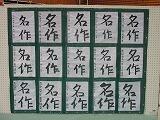 名作 名作 名作 名作 名作
名作 名作 名作 名作 名作
名作 名作 名作 名作 名作